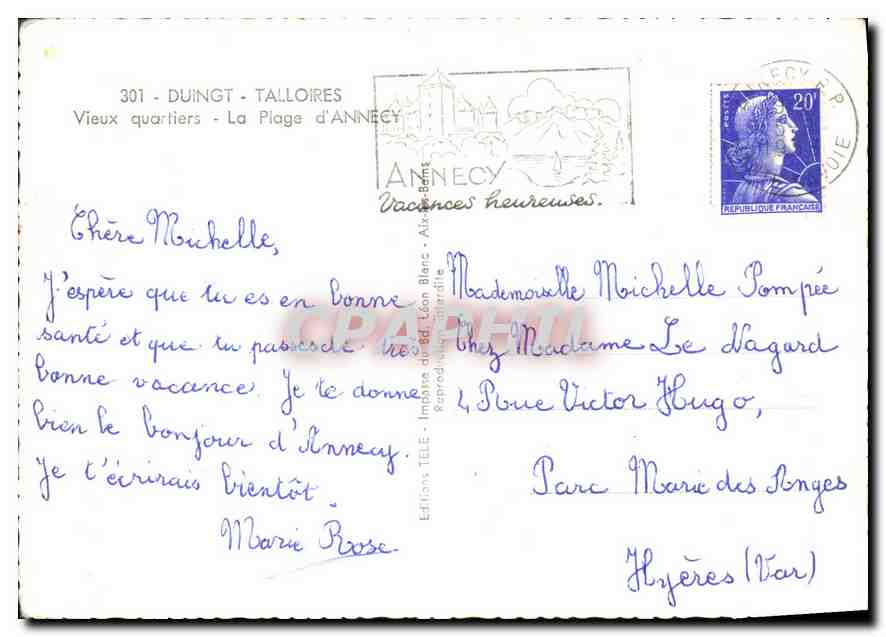 301 - DUINGT - TALLOIRES
Vieux quartiers - La Plage d'ANNECY
ANNECY
Vacances heureuses.
ANNECY R.P.
POSTES
20F
REPUBLIQUE FRANÇAISE
Chère Michelle,
J'espère que tu es en bonne
santé et que tu passes de très
bonne vacance. Je te donne
bien le bonjour d'Annecy.
Je t'écrirais bientôt.
Marie Rose
Editions TELE - Impasse du Bd. Léon Blanc - Aix-les-Bains
Reproduction interdite
Mademoiselle Michelle Pompée
Chez Madame Le Nagard
4 Rue Victor Hugo,
Parc Marie des Anges
Hyères (Var)
CPAPHIL